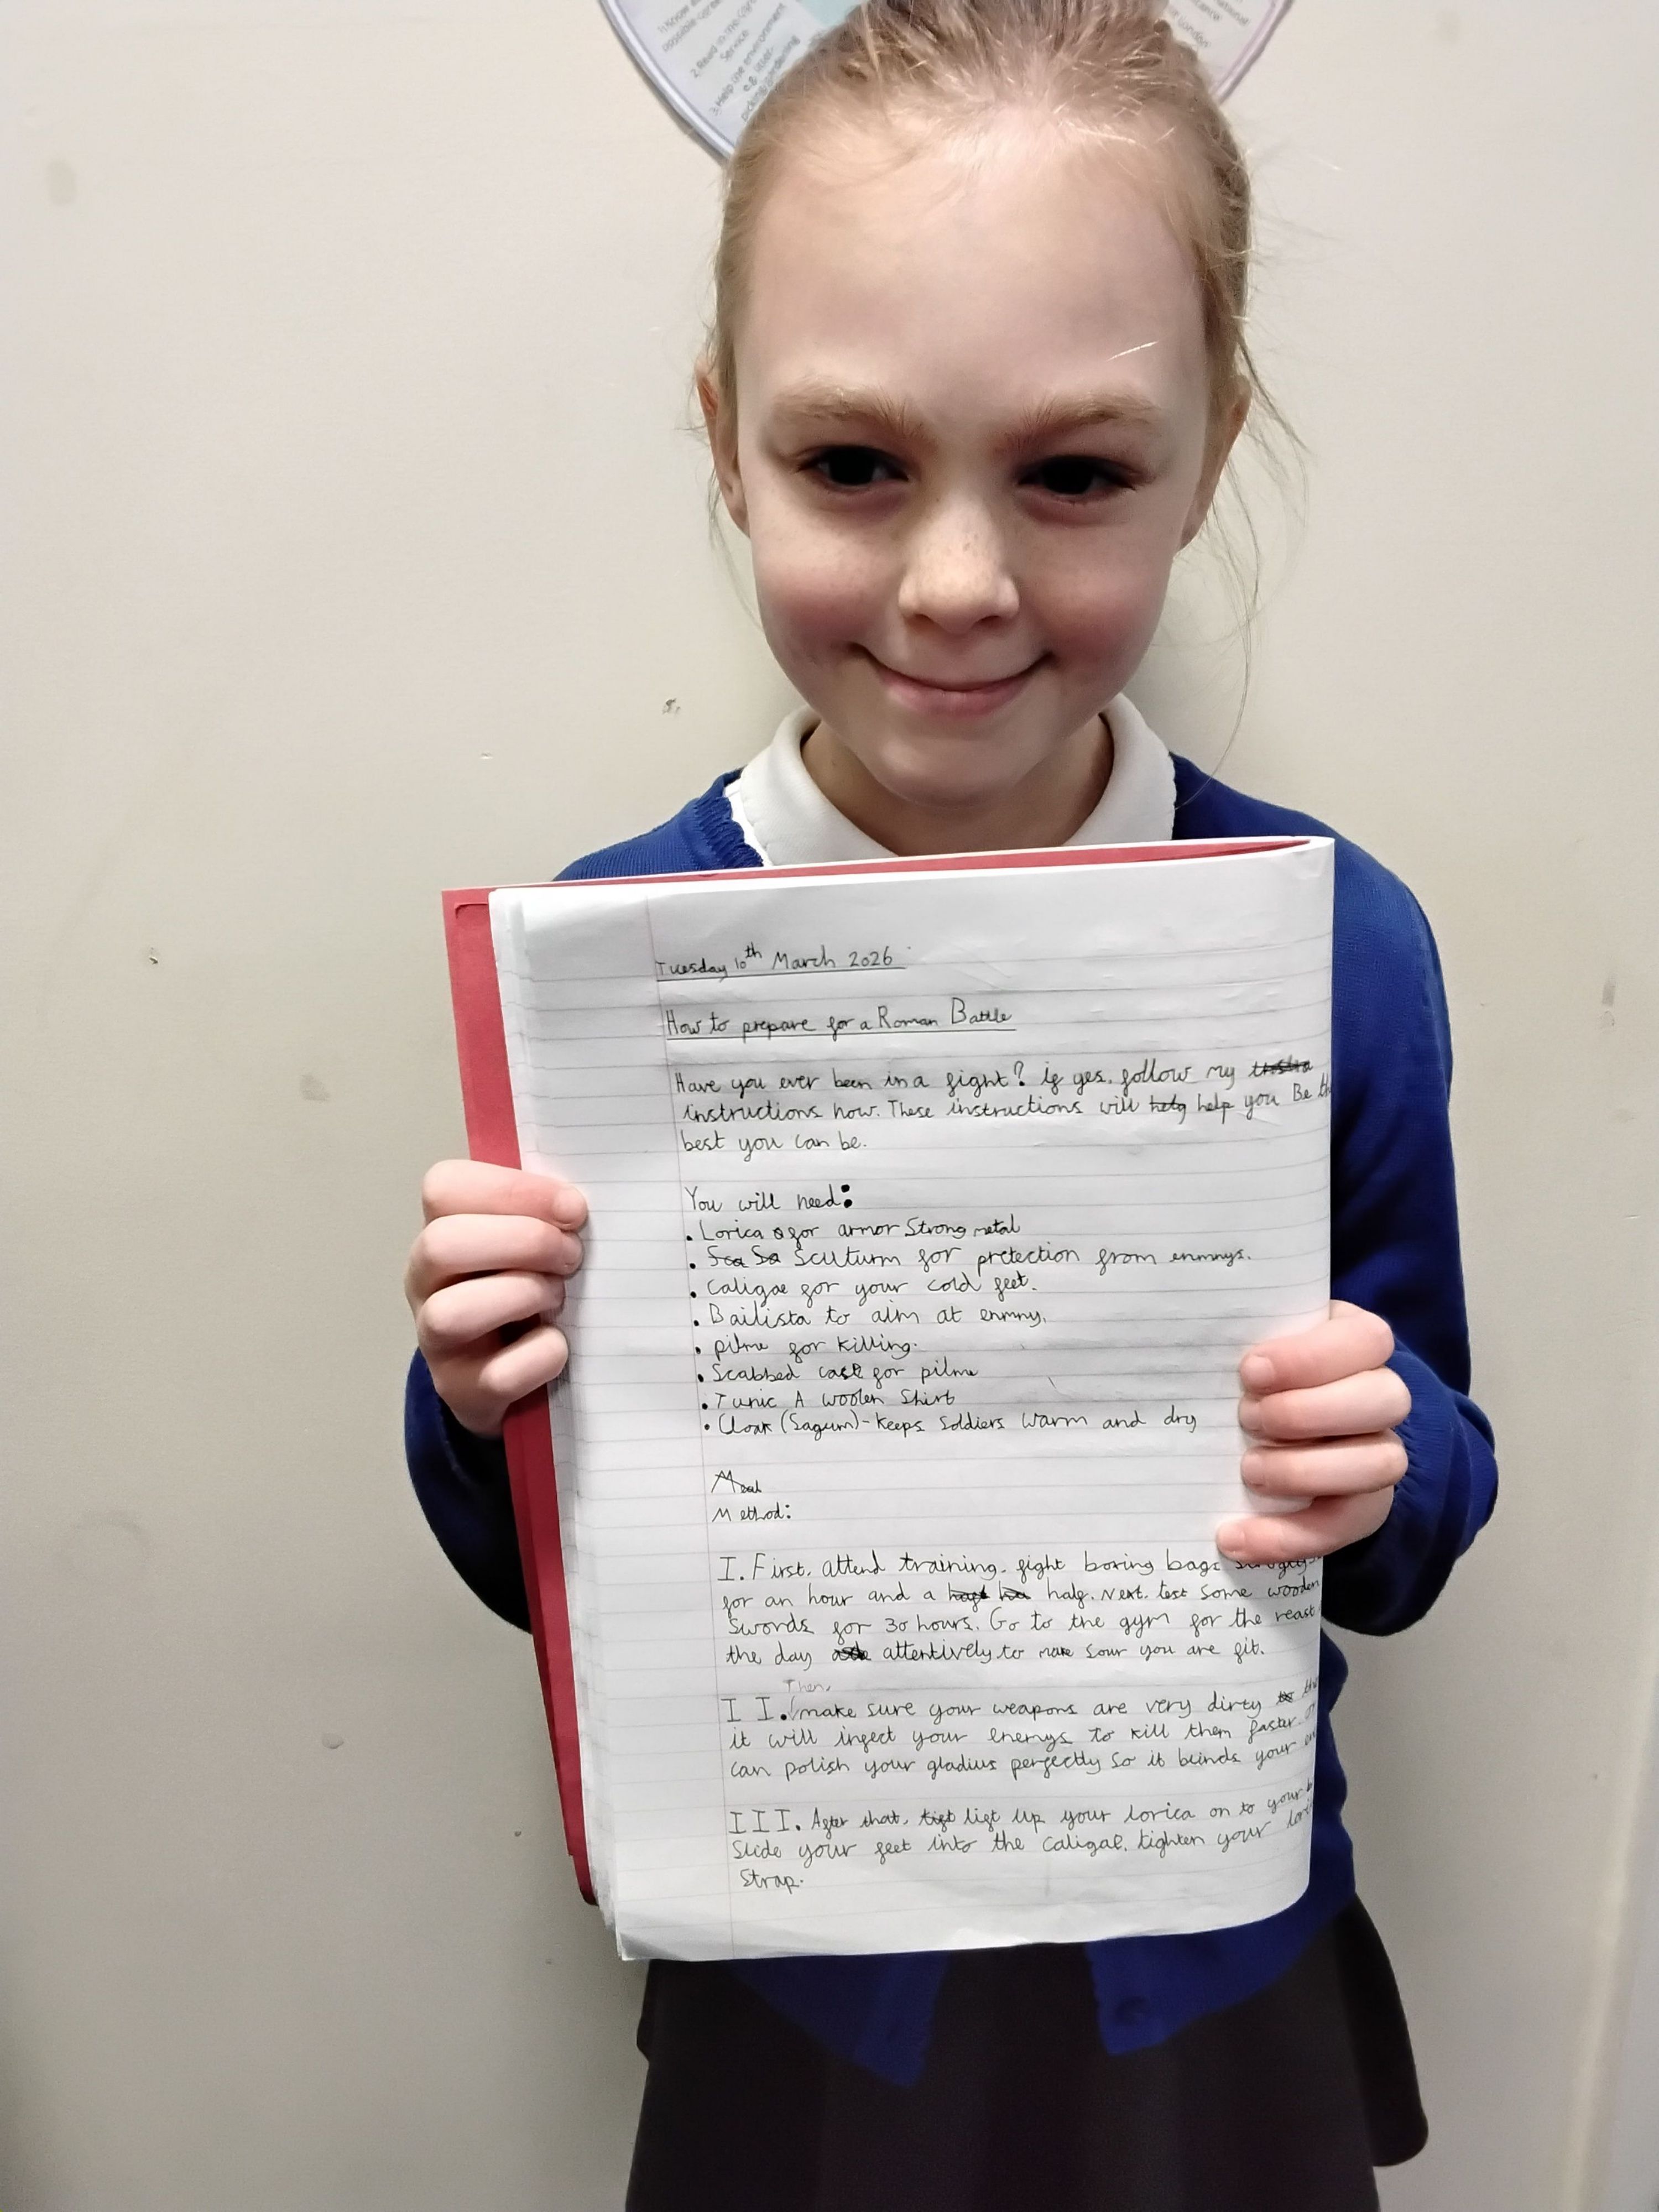 1. Know a
possible care
2. Read in the
Service
3. Help the environment
e.g. litter-
picking/gardening
national
London
Tuesday 10th March 2026
How to prepare for a Roman Battle
Have you ever been in a fight? if yes, follow my
instructions now. These instructions will help you Be th
best you can be.
You will need:
• Lorica for armor Strong metal
• Scuturm for pretection from enmnys.
• Caligae for your cold feet.
• Bailista to aim at enmny.
• pilme for killing.
• Scabbed case for pilme
• Tunic A woolen Shirt
• Cloak (Sagum)-Keeps Soldiers warm and dry
Method:
I. First, attend training, fight boxing bags
for an hour and a half. Next, test some wooden
Swords for 30 hours. Go to the gym for the reast
the day attentively to make sour you are fit.
Then,
I I. make sure your weapons are very dirty
it will infect your enemys to kill them faster
can polish your gladius perfectly So it blinds your
I I I. After that, lift up your lorica on to your
Slide your feet into the caligae, tighten your
Strap.